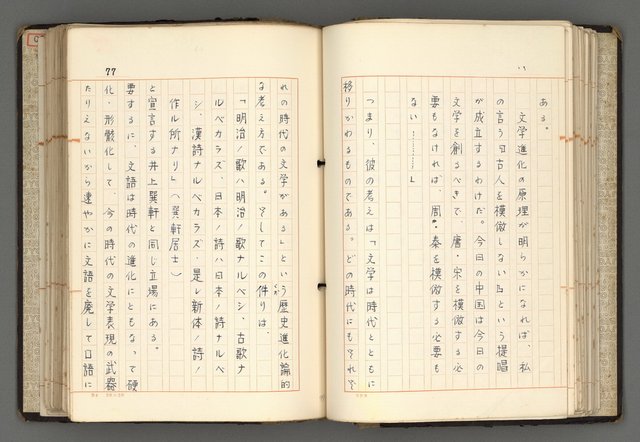 ある。
文学進化の原理が明らかになれば、私
の言う『古人を模倣しない』という提唱
が成立するわけだ。今日の中国は今日の
文学を創るべきで、唐・宋を模倣する必
要もなければ、周・秦を模倣する必要も
ない…………」
つまり、彼の考えは「文学は時代とともに
移りかわるものである。どの時代にもそれぞ
77
れの時代の文学がある」という歴史進化論的
な考え方である。そしてこの件りは、
「明治ノ歌ハ明治ノ歌ナルベシ、古歌ナ
ルベカラズ、日本ノ詩ハ日本ノ詩ナルベ
シ、漢詩ナルベカラズ、是レ新体ノ詩ノ
作ル所ナリ」（巽軒居士）
と宣言する井上巽軒と同じ立場にある。
要するに、文語は時代の進化にともなって硬
化・形骸化して、今の時代の文学表現の武器
たりえないから速やかに文語を廃して口語に